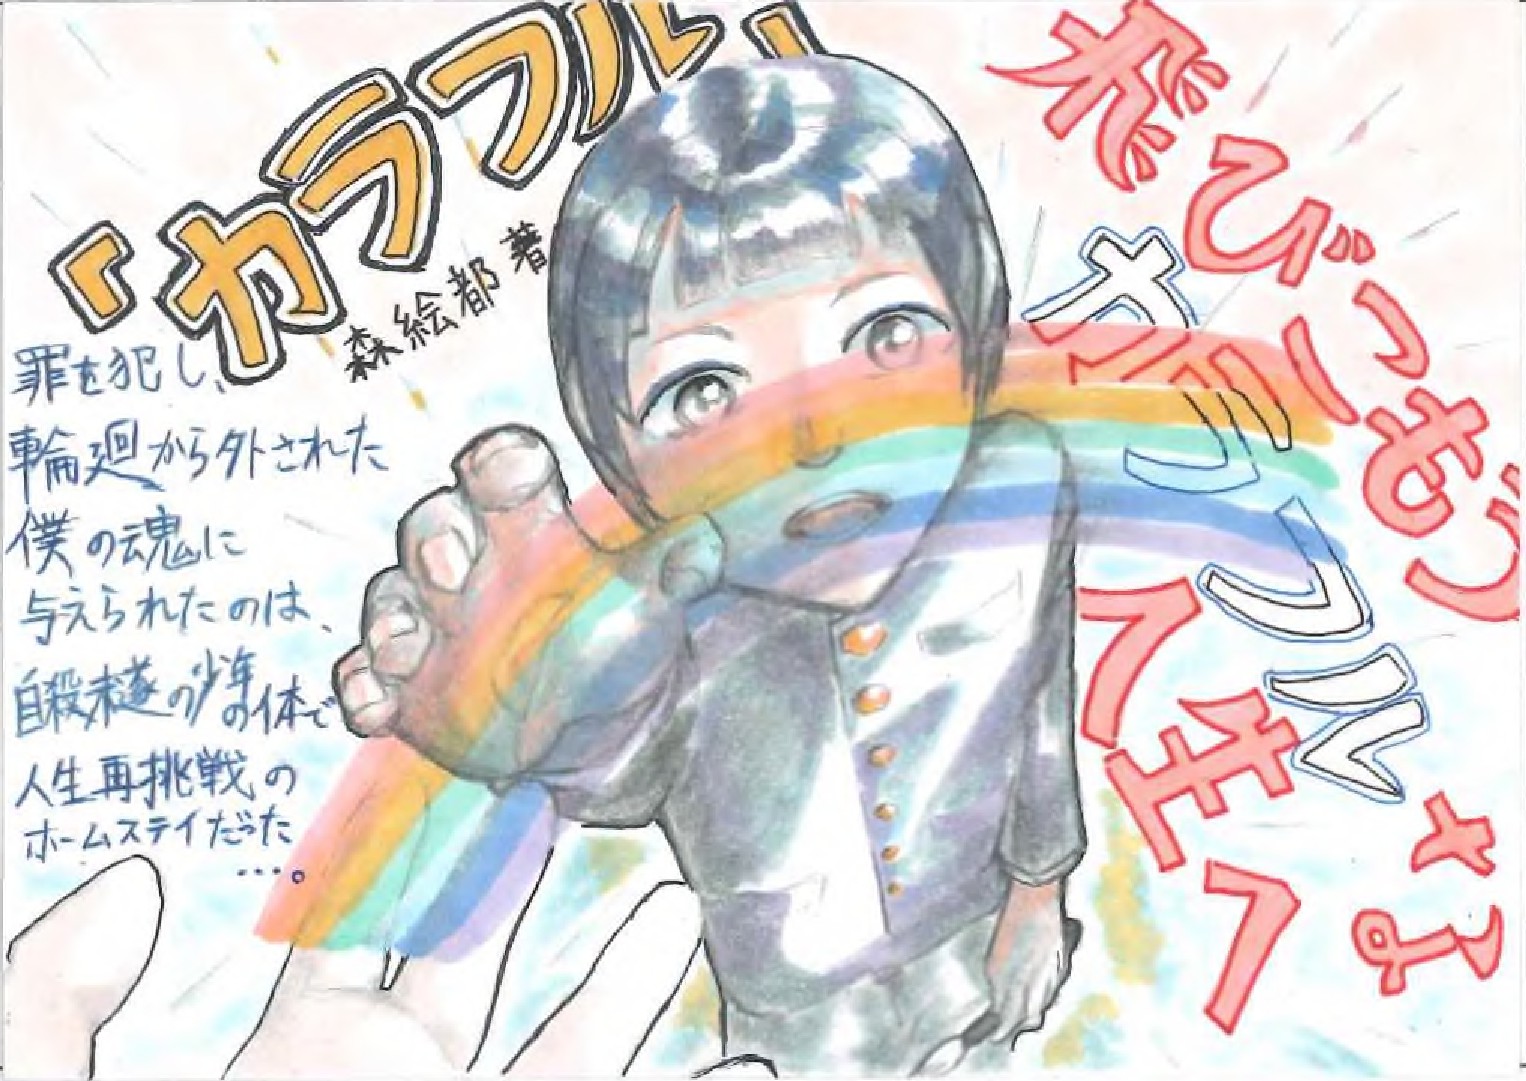 「カラフル」
森絵都 著
罪を犯し、
輪廻から外された
僕の魂に
与えられたのは、
自殺未遂の少年の体で
人生再挑戦の
ホームステイだった
…。
飛びこもう
カラフルな
人生へ